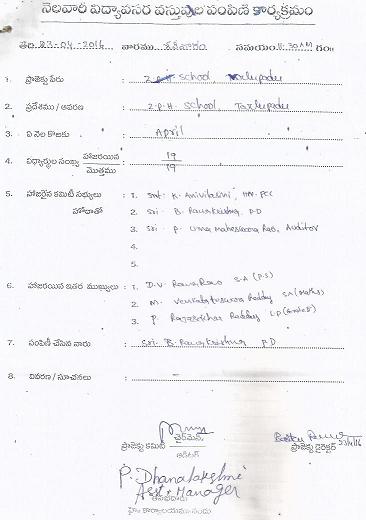 నెలవారీ విద్యావసర వస్తువుల పంపిణి కార్యక్రమం
తేది 23-04-2016 వారము. శనివారం సమయం. 8.30AM గం॥
1. ప్రాజెక్టు పేరు : Z.P.H School Tadepadu
2. ప్రదేశము / ఆవరణ : Z.P.H. School
3. ఏ నెల కొఱకు : April
4. విద్యార్థుల సంఖ్య హాజరయిన : 19
మొత్తము 19
5. హాజరైన కమిటీ సభ్యులు : 1. Smt. K. Anivilasini, HM. PCC
హోదాతో 2. Sri. B. Ramakrishna, P.D
3. Sri P. Uma maheswara Rao, Auditor
4.
5.
6. హాజరయిన ఇతర ముఖ్యులు : 1. D.V. Rama Rao S.A (P.S)
2. M. Venkateswara Reddy S.A (Maths)
3. P. Rajasekhar Reddy L.P
7. పంపిణీ చేసిన వారు : Sri. B. Ramakrishna P.D
8. వివరణ / సూచనలు : -
ప్రాజెక్టు కమిటీ చైర్మెన్
ఆడిటర్
ప్రాజెక్టు డైరెక్టర్
P. Dhanalakshmi
Asst Manager